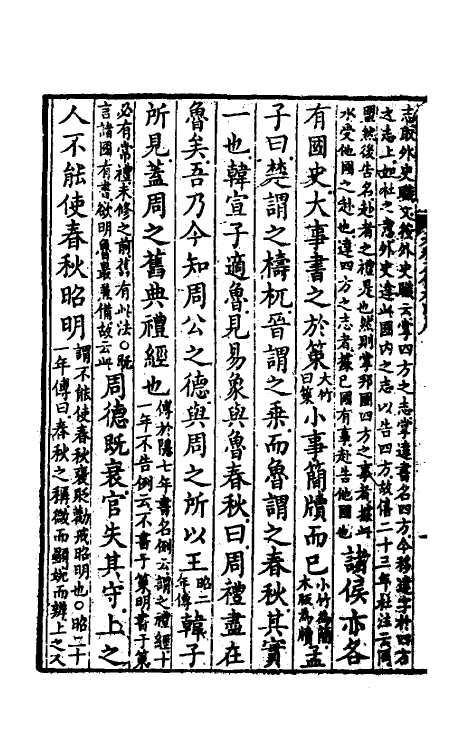 志取外史職文按外史職云掌四方之志掌達書名四方今移達字於四方
之志上如杜之意外史達此國内之志以告四方故僖二十三年杜注云同
盟然後告名赴者之禮是也然則掌邦國四方之事者據此
承受他國之赴也達四方之志者據已國有事赴告他國也
諸侯亦各
有國史大事書之於策大竹曰策小事簡牘而已小竹為簡木版為牘孟
子曰楚謂之檮杌晉謂之乘而魯謂之春秋其實
一也韓宣子適魯見易象與魯春秋曰周禮盡在
魯矣吾乃今知周公之德與周之所以王昭二年傳韓子
所見蓋周之舊典禮經也
傳於隱七年書名例云謂之禮經十
一年不告例云不書于策明書于策
必有常禮未修之前舊有此法○既
言諸國有書欲明魯最兼備故云此
周德既衰官失其守上之
人不能使春秋昭明
謂不能使春秋褒貶勸戒昭明也○昭三十
一年傳曰春秋之稱微而顯婉而辨上之人